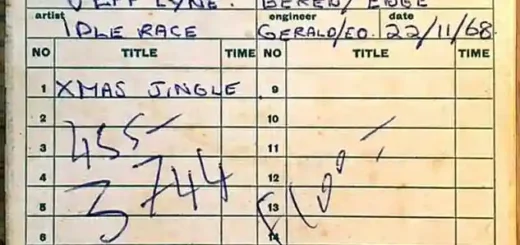 JEFF LYNE. BEREN/EDGE
artist engineer date
IDLE RACE GERALD/EO. 22/11/68.
NO TITLE TIME NO TITLE TIME
1 XMAS JINGLE 9
2 10
455
3 11
3744
4 12
5 13
6 14